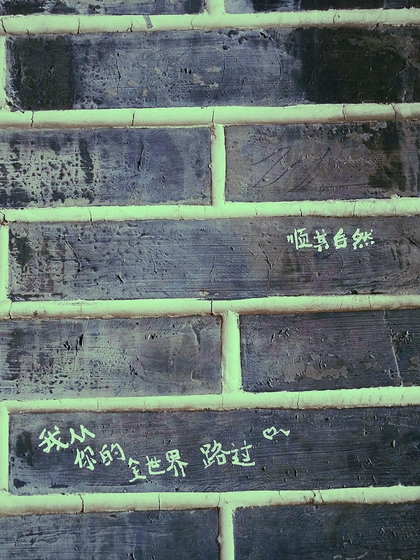 顺其自然
我从
你的
全世界 路过